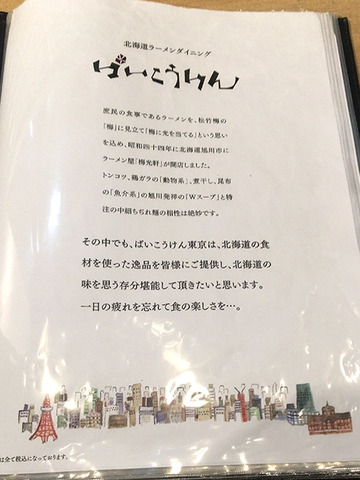 北海道ラーメンダイニング
ばいこうけん
庶民の食事であるラーメンを、松竹梅の
「梅」に見立て「梅に光を当てる」という思い
を込め、昭和四十四年に北海道旭川市に
ラーメン屋「梅光軒」が開店しました。
トンコツ、鶏ガラの「動物系」、煮干し、昆布
の「魚介系」の旭川発祥の「Wスープ」と特
注の中細ちぢれ麺の相性は絶妙です。
その中でも、ばいこうけん東京は、北海道の食
材を使った逸品を皆様にご提供し、北海道の
味を思う存分堪能して頂きたいと思います。
一日の疲れを忘れて食の楽しさを…。
は全て税込になっております。